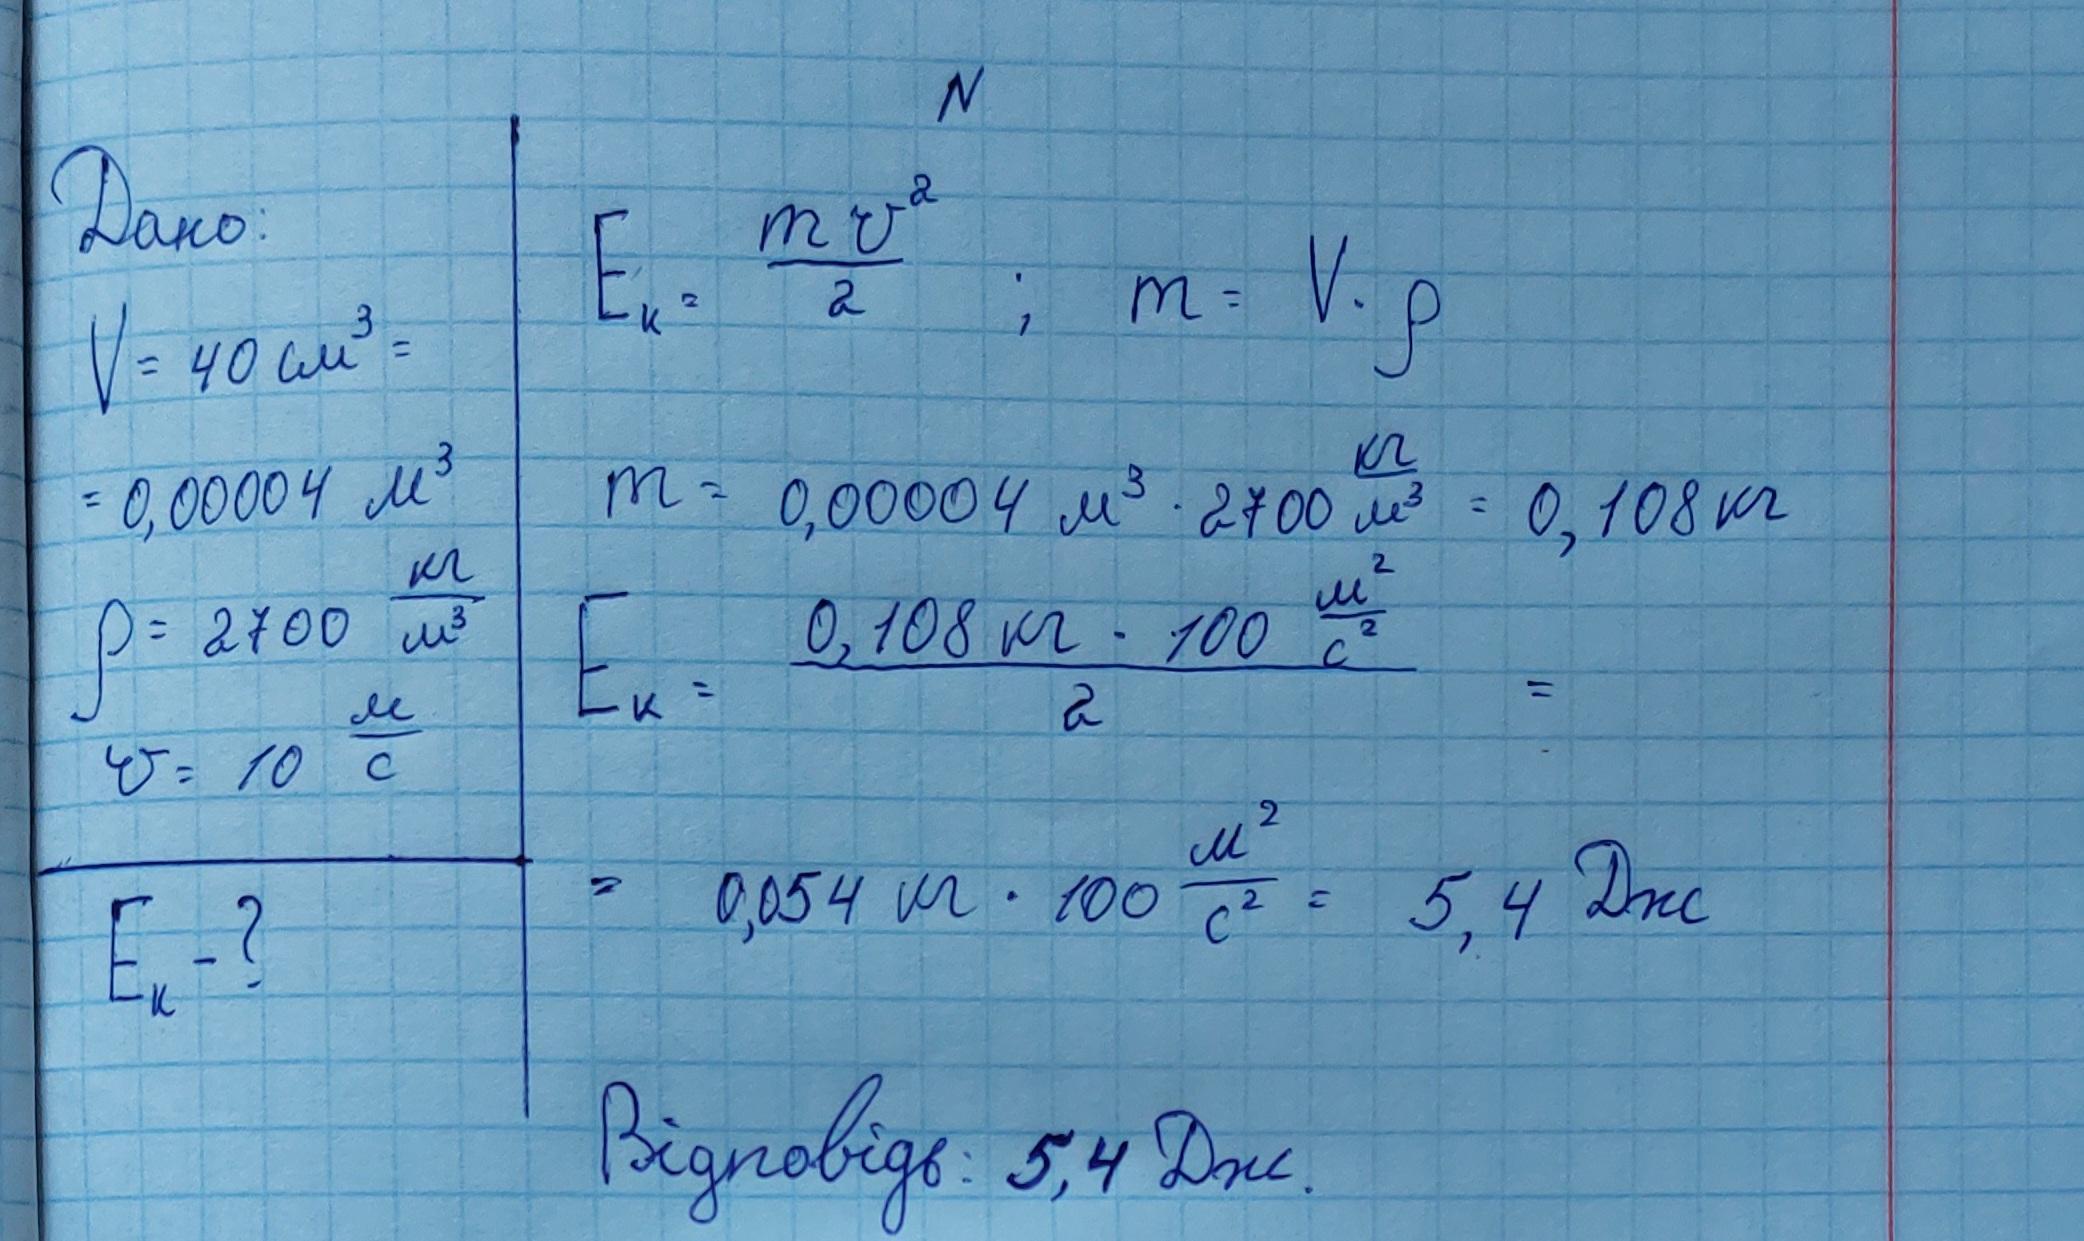 N
Дано:
V = 40 см³ =
= 0,00004 м³
ρ = 2700 кг/м³
v = 10 м/с
Eк - ?
Eк = mv²/2 ; m = V · ρ
m = 0,00004 м³ · 2700 кг/м³ = 0,108 кг
Eк = 0,108 кг · 100 м²/с² / 2 =
= 0,054 кг · 100 м²/с² = 5,4 Дж
Відповідь: 5,4 Дж.